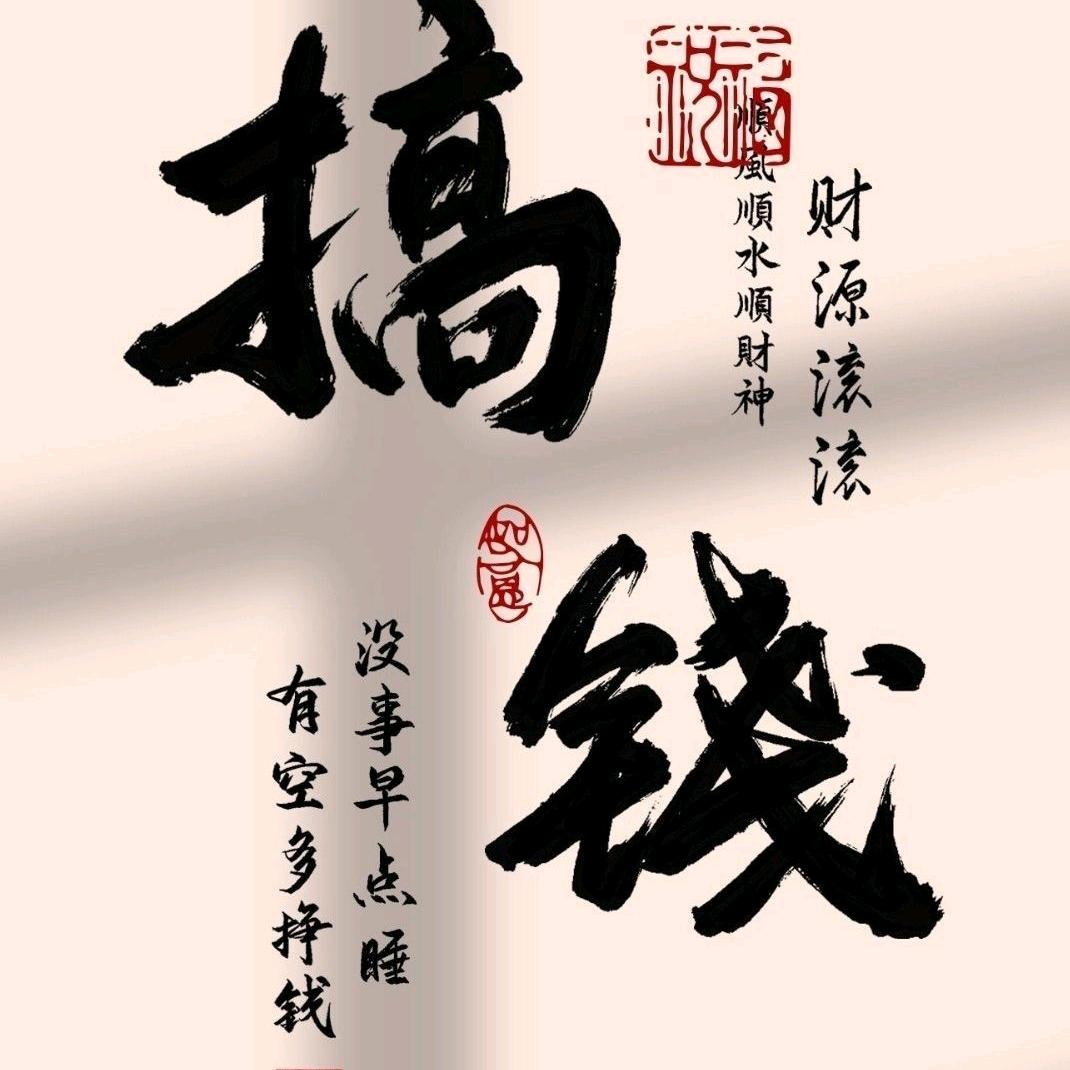 搞
钱
财源滚滚
順風順水順財神
如意
没事早点睡
有空多挣钱